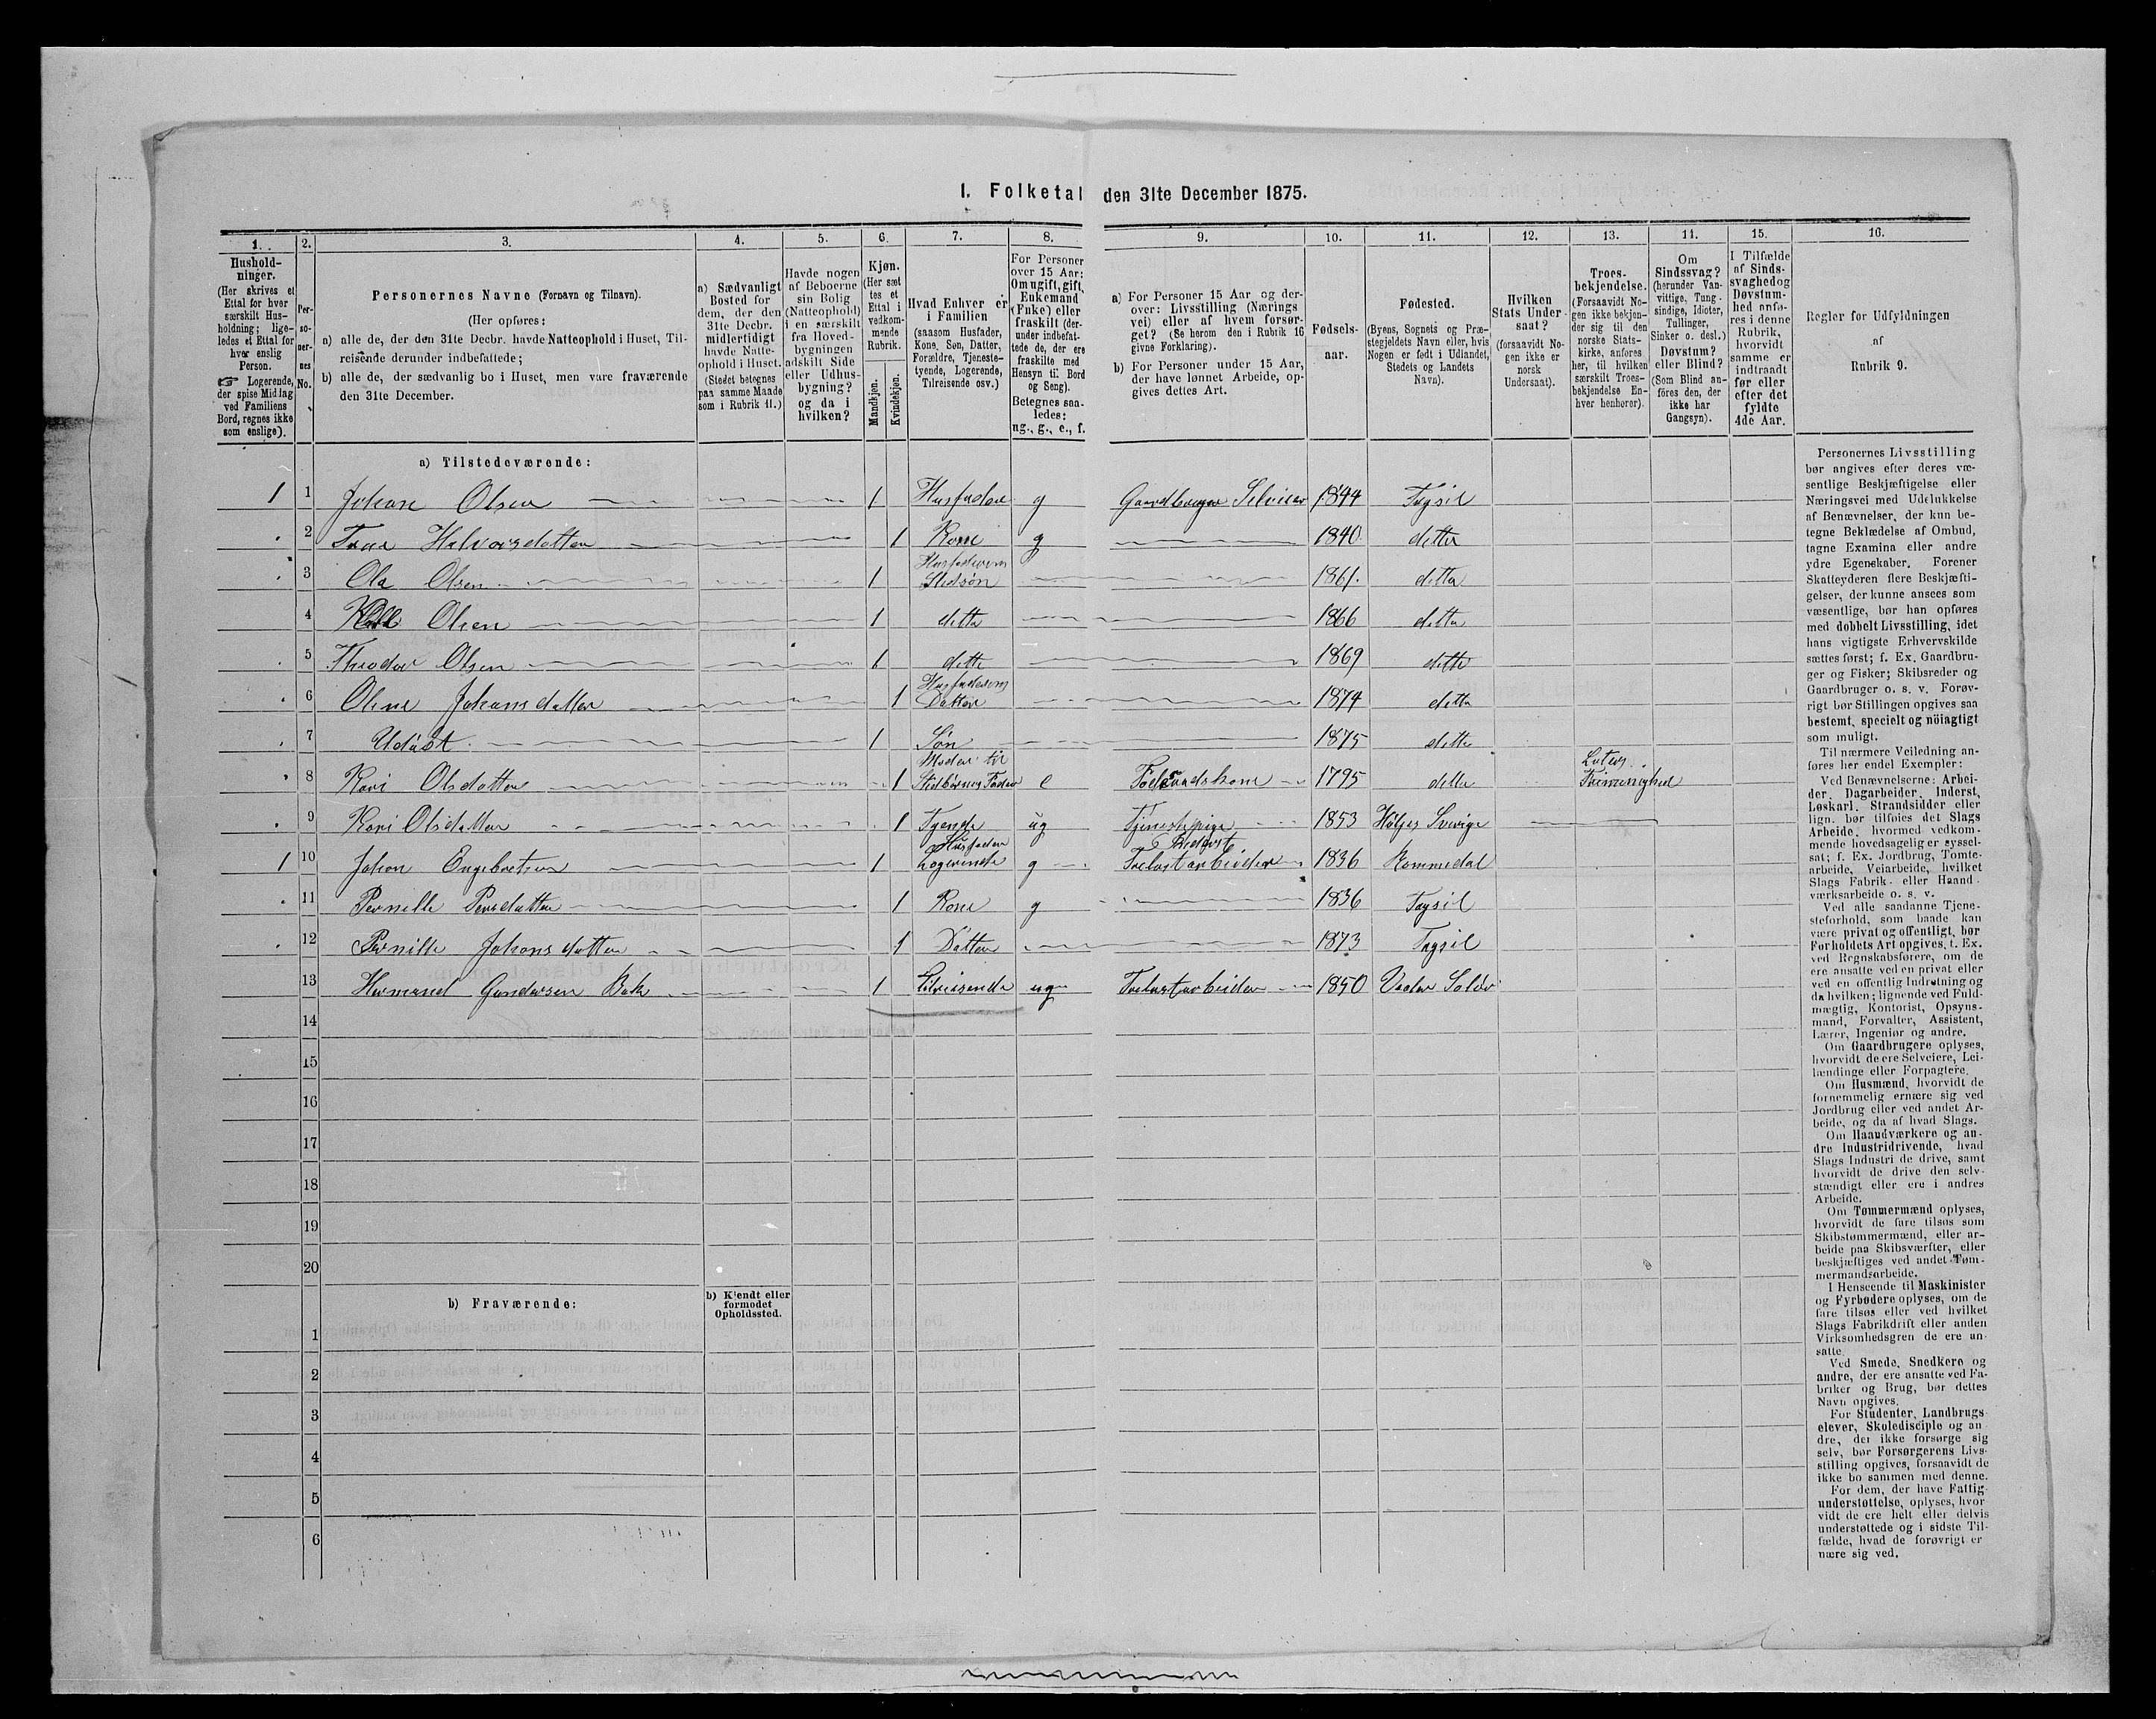 I. Folketal den 31te December 1875.
1. 2. 3. 4. 5. 6. 7. 8. 9. 10. 11. 12. 13. 14. 15. 16.
Hushold-
ninger.
(Her skrives et
Ettal for hver
særskilt Hus-
holdning; lige-
ledes et Ettal for
hver enslig
Person.
☞ Logerende,
der spise Middag
ved Familiens
Bord, regnes ikke
som enslige).
Per-
so-
ner-
nes
No.
Personernes Navne (Fornavn og Tilnavn).
(Her opføres:
a) alle de, der den 31te Decbr. havde Natteophold i Huset, Til-
reisende derunder indbefattede;
b) alle de, der sædvanlig bo i Huset, men vare fraværende
den 31te December.
a) Sædvanligt
Bosted for
dem, der den
31te Decbr.
midlertidigt
havde Natte-
ophold i Huset.
(Stedet betegnes
paa samme Maade
som i Rubrik 11.)
Havde nogen
af Beboerne
sin Bolig
(Natteophold)
i en særskilt
fra Hoved-
bygningen
adskilt Side
eller Udhus-
bygning?
og da i
hvilken?
Kjøn.
(Her sæt
tes et
Ettal i
vedkom-
mende
Rubrik.
Mandkjøn.
Kvindekjøn.
Hvad Enhver er
i Familien
(saasom Husfader,
Kone, Søn, Datter,
Forældre, Tjeneste-
tyende, Logerende,
Tilreisende osv.)
For Personer
over 15 Aar:
Om ugift, gift,
Enkemand
(Enke) eller
fraskilt (der-
under indbefat-
tede de, der ere
fraskilte med
Hensyn til Bord
og Seng).
Betegnes saa-
ledes:
ug., g., e., f.
a) For Personer 15 Aar og der-
over: Livsstilling (Nærings
vei) eller af hvem forsør-
get? (Se herom den i Rubrik 16
givne Forklaring).
b) For Personer under 15 Aar,
der have lønnet Arbeide, op-
gives dettes Art.
Fødsels-
aar.
Fødested.
(Byens, Sognets og Præ-
stegjeldets Navn eller, hvis
Nogen er født i Udlandet,
Stedets og Landets
Navn).
Hvilken
Stats Under-
saat?
(forsaavidt No-
gen ikke er
norsk
Undersaat).
Troes-
bekjendelse.
(Forsaavidt No-
gen ikke bekjen-
der sig til den
norske Stats-
kirke, anføres
her, til hvilken
særskilt Troes-
bekjendelse En-
hver henhører).
Om
Sindssvag?
(herunder Van-
vittige, Tung-
sindige, Idioter,
Tullinger,
Sinker o. desl.)
Døvstum?
eller Blind?
(Som Blind an-
føres den, der
ikke har
Gangsyn).
I Tilfælde
af Sinds-
svaghed og
Døvstum-
hed anfø-
res i denne
Rubrik,
hvorvidt
samme er
indtraadt
før eller
efter det
fyldte
4de Aar.
Regler for Udfyldningen
af
Rubrik 9.
a) Tilstedeværende:
1 1 Johan Olsen 1 Husfader g Gaardbruger Selveier 1844 Trysil
2 Halvorsdatter 1 Kone g 1840 detto
3 Ola Olsen 1 Husfaderens Stedsøn 1861 detto
4 Olsen 1 detto 1866 detto
5 Theodor Olsen 1 detto 1869 detto
6 Oline Johansdatter 1 Husfaderens Datter 1874 detto
7 Udøbt 1 Søn 1875 detto
8 Kari Olsdatter 1 Moder til Stedbørnenes Fader e Føderaadskone 1795 detto Luthers Frimenighed
9 Kari Olsdatter 1 Tyende ug Tjenestepige 1853 Sverige
1 10 Johan Engebretsen 1 Husfader Logerende g Trælastarbeider 1836 Rommedal
11 Pernille Persdatter 1 Kone g 1836 Trysil
12 Pernille Johansdatter 1 Datter 1873 Trysil
13 Hermand Gundersen 1 Tilreisende ug Trælastarbeider 1850 Vaaler Solør
14
15
16
17
18
19
20
b) Fraværende:
b) Kjendt eller
formodet
Opholdssted.
1
2
3
4
5
6
Personernes Livsstilling
bør angives efter deres væ-
sentlige Beskjæftigelse eller
Næringsvei med Udelukkelse
af Benævnelser, der kun be-
tegne Beklædelse af Ombud,
tagne Examina eller andre
ydre Egenskaber. Forener
Skatteyderen flere Beskjæfti-
gelser, der kunne ansees som
væsentlige, bør han opføres
med dobbelt Livsstilling, idet
hans vigtigste Erhvervskilde
sættes først; f. Ex. Gaardbru-
ger og Fisker; Skibsreder og
Gaardbruger o. s. v. Forøv-
rigt bør Stillingen opgives saa
bestemt, specielt og nöiagtigt
som muligt.
Til nærmere Veiledning an-
føres her endel Exempler:
Ved Benævnelserne: Arbei-
der, Dagarbeider, Inderst,
Løskarl, Strandsidder eller
lign. bør tilføies det Slags
Arbeide, hvormed vedkom-
mende hovedsagelig er syssel-
sat; f. Ex. Jordbrug, Tomte-
arbeide, Veiarbeide, hvilket
Slags Fabrik- eller Haand-
værksarbeide o. s. v.
Ved alle saadanne Tjene-
steforhold, som baade kan
være privat og offentligt, bør
Forholdets Art opgives, t. Ex.
ved Regnskabsførere, om de
ere ansatte ved en privat eller
ved en offentlig Indretning og
da hvilken; lignende ved Fuld-
mægtig, Kontorist, Opsyns-
mand, Forvalter, Assistent,
Lærer, Ingeniør og andre.
Om Gaardbrugere oplyses,
hvorvidt de ere Selveiere, Lei-
lændinge eller Forpagtere.
Om Husmænd, hvorvidt de
fornemmelig ernære sig ved
Jordbrug eller ved andet Ar-
beide, og da af hvad Slags.
Om Haandværkere og an-
dre Industridrivende, hvad
Slags Industri de drive, samt
hvorvidt de drive den selv-
stændigt eller ere i andres
Arbeide.
Om Tømmermænd oplyses,
hvorvidt de fare tilsøs som
Skibstømmermænd, eller ar-
beide paa Skibsværfter, eller
beskjæftiges ved andet Tøm-
mermandsarbeide.
I Henseende til Maskinister
og Fyrbødere oplyses, om de
fare tilsøs eller ved hvilket
Slags Fabrikdrift eller anden
Virksomhedsgren de ere an-
satte.
Ved Smede, Snedkere og
andre, der ere ansatte ved Fa-
briker og Brug, bør dettes
Navn opgives.
For Studenter, Landbrugs-
elever, Skoledisciple og an-
dre, der ikke forsørge sig
selv, bør Forsørgerens Livs-
stilling opgives, forsaavidt de
ikke bo sammen med denne.
For dem, der have Fattig-
understøttelse, oplyses, hvor-
vidt de ere helt eller delvis
understøttede og i sidste Til-
fælde, hvad de forøvrigt er-
nære sig ved.